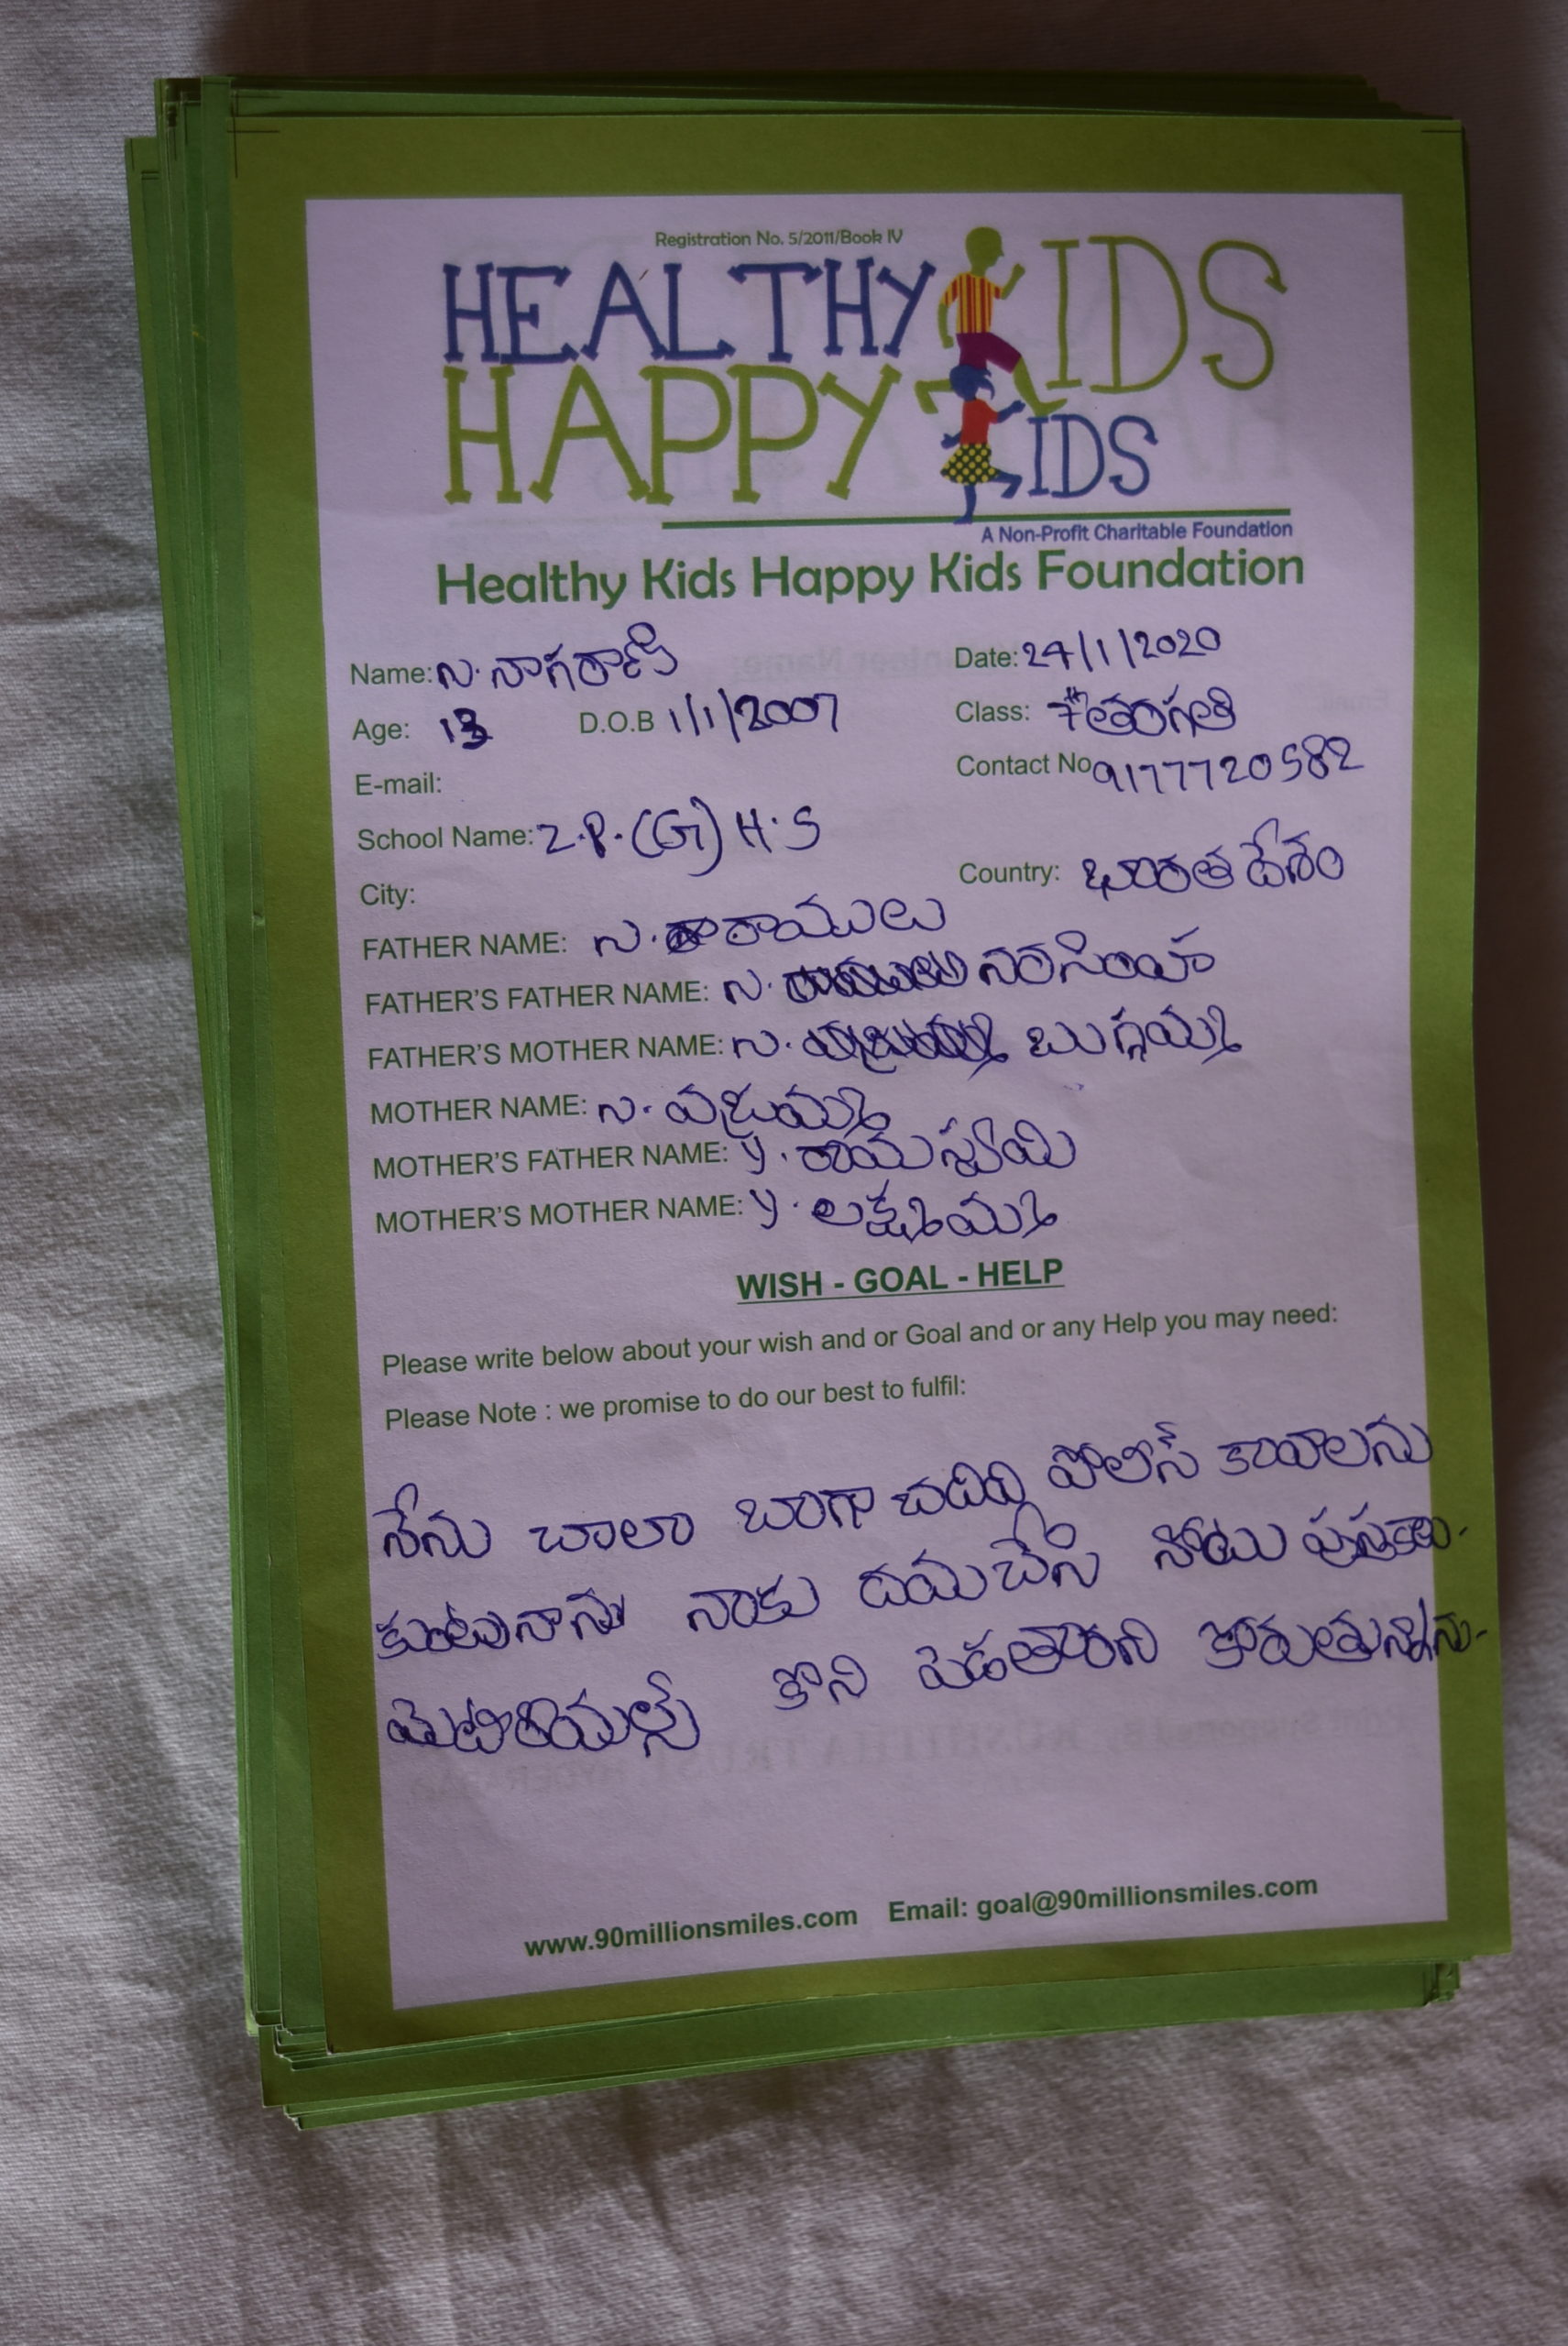 Registration No. 5/2011/Book IV
HEALTHY KIDS
HAPPY KIDS
A Non-Profit Charitable Foundation
Healthy Kids Happy Kids Foundation
Name: న. నాగరాణి Date: 24/1/2020
Age: 13 D.O.B 1/1/2007 Class: 7th తరగతి
E-mail: Contact No 9177720582
School Name: Z.P.(G) H.S
City: Country: భారత దేశం
FATHER NAME: న. రాములు
FATHER'S FATHER NAME: న. నరసింహ
FATHER'S MOTHER NAME: న. బుగ్గమ్మ
MOTHER NAME: న. వజ్రమ్మ
MOTHER'S FATHER NAME: y. రామస్వామి
MOTHER'S MOTHER NAME: y. లక్ష్మమ్మ
WISH - GOAL - HELP
Please write below about your wish and or Goal and or any Help you may need:
Please Note : we promise to do our best to fulfil:
నేను చాలా బాగా చదివి పోలీస్ కావాలను
కుంటునాను నాకు దయచేసి నోటు పుస్తకాలు.
మెటీరియల్స్ కొని పెడతారని కోరుతున్నాను.
www.90millionsmiles.com Email: goal@90millionsmiles.com